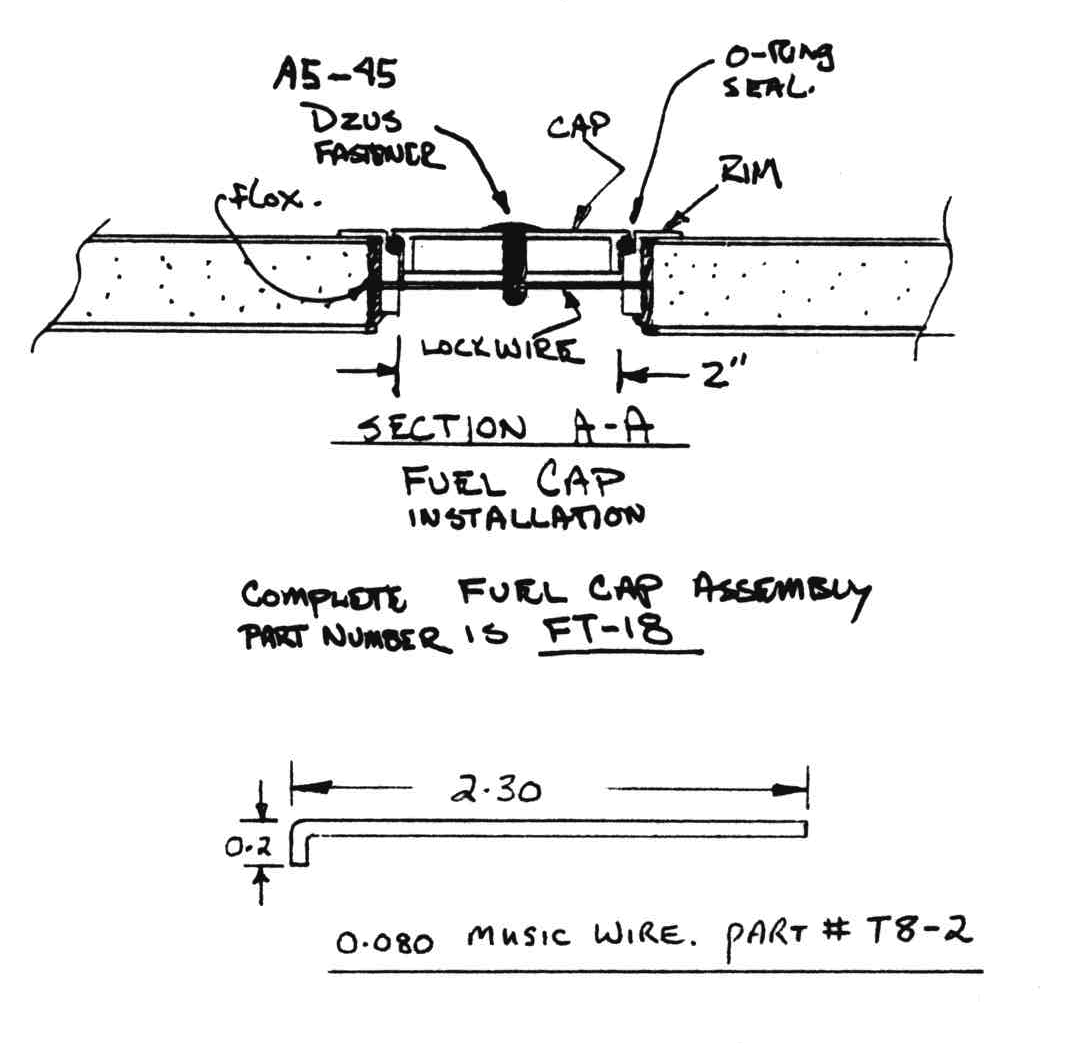 A5-45
DZUS
FASTENER
O-RING
SEAL.
CAP
RIM
FLOX.
LOCKWIRE
2"
SECTION A-A
FUEL CAP
INSTALLATION
COMPLETE FUEL CAP ASSEMBLY
PART NUMBER IS FT-18
2.30
0.2
0.080 MUSIC WIRE. PART # T8-2